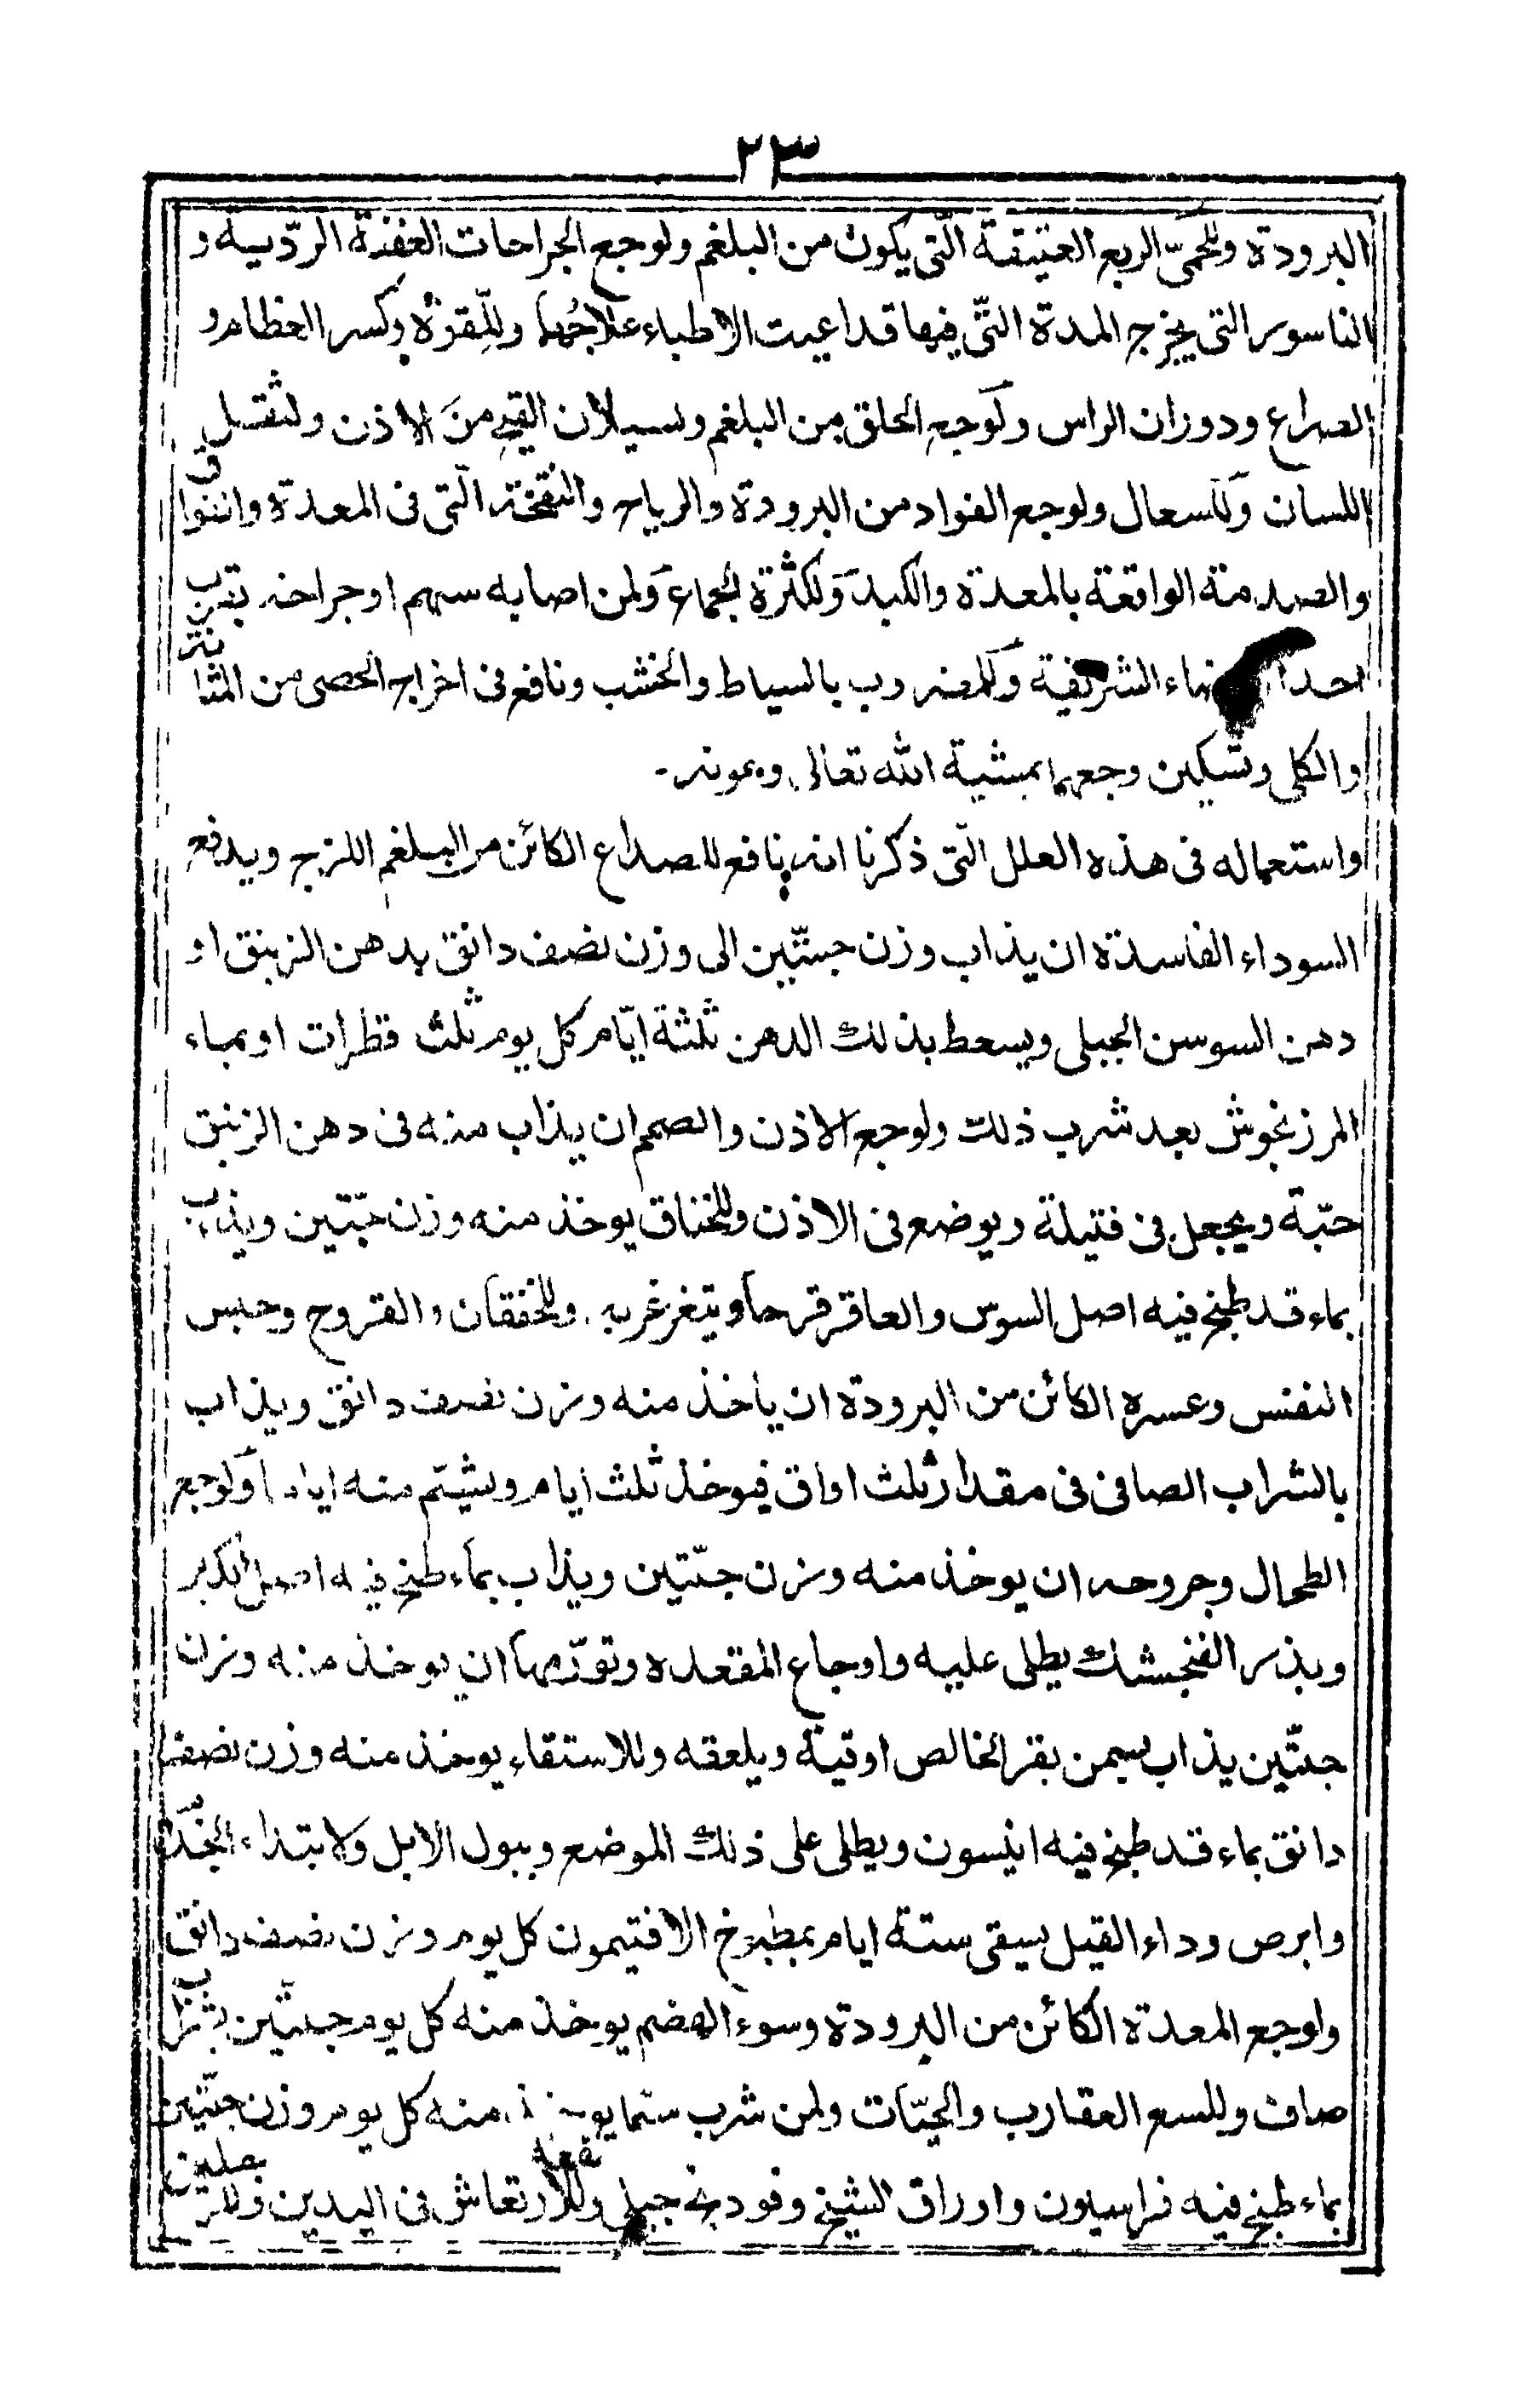 ٢٣
البرودة وللحمىّ الربع العتيقة الّتى يكون من البلغم ولوجع الجراحات العفنة الردّيه و
الناسور التى يخرج المدة التّى فيها قد اعيت الاطباء علاجُها وللّقوة وكسر العظام و
الصراع ودوران الراس ولوجع الحلق من البلغم وسيلان القيح منَ الاذن ولثقل
اللسان وللسعال ولوجع الفواد من البرودة والرياح والنفخة الّتى فى المعدة والفواق
والصدمة الواقعة بالمعدة والكبد ولكثرة الجماع ولمن اصابه سهم او جراحة بقرب
احد الشريفة وللمضروب بالسياط والخشب ونافع فى اخراج الحصى من المثانة
والكلى وتسكين وجعهما بمشية الله تعالى وبعونه۔
واستعماله فى هذه العلل الّتى ذكرنا انه نافع للصداع الكائن من البلغم اللزج ويدفع
السوداء الفاسدة ان يذاب وزن حبتّين الى وزن نصف دانق بدهن الزنبق او
دهن السوسن الجبلى ويسعط بذلك الدهن ثلثة ايّام كل يوم ثلث قطرات او بماء
المرزنجوش بعد شرب ذلك ولوجع الاذن والصمم ان يذاب منه فى دهن الزنبق
حبّة ويجعل فى فتيلة ويوضع فى الاذن وللخناق يوخذ منه وزن حبّتين ويذاب
بماء قد طبخ فيه اصل السوس والعاقرقرحا ويتغرغر به وللخفقان والقروح وحبس
النفس وعسره الكائن من البرودة ان ياخذ منه وزن نصف دانق ويذاب
بالشراب الصافى فى مقدار ثلث اواق فيوخذ ثلث ايام ويشتم منه اياما ولوجع
الطحال وجروحه ان يوخذ منه وزن حبّتين ويذاب بماء طبخ فيه اصل الكبر
وبذر الفنجشك يطلى عليه واوجاع المقعده وتورّمها ان يوخذ منه وزن
حبتّين يذاب بسمن بقر الخالص اوقية ويلعقه وللاستقاء يوخذ منه وزن نصف
دانق بماء قد طبخ فيه انيسون ويطلى على ذلك الموضع وببول الابل ولابتداء الجذام
وابرص وداء الفيل يسقى ستة ايام بمطبوخ الافتيمون كل يوم وزن نصف دانق
ولوجع المعدة الكائن من البرودة وسوء الهضم يوخذ منه كل يوم حبتّين بشراب
صاف وللسع العقارب والحيّات ولمن شرب سمّا يوخذ منه كل يوم وزن حبتّين
بماء طبخ فيه فراسيون واوراق الشيخ وفودنج جبلى وللارتعاش فى اليدين والرجلين